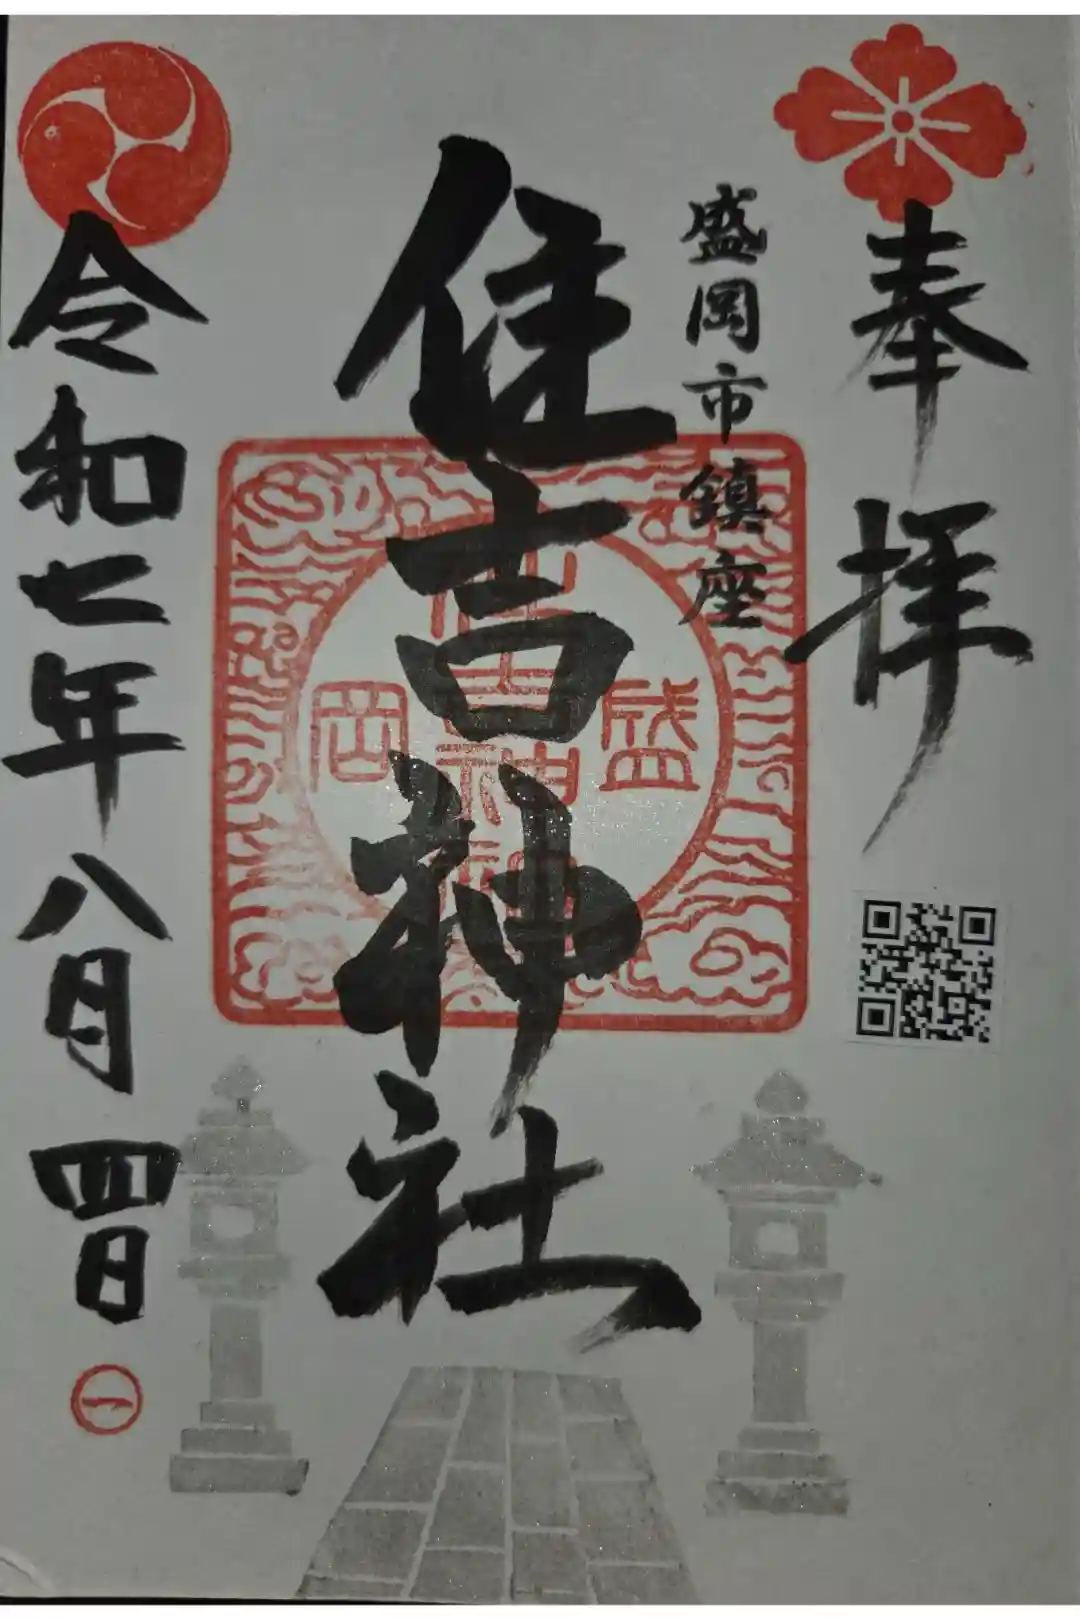 奉拝
盛岡市鎮座
住吉神社
盛岡
住吉神社
令和七年八月四日
一